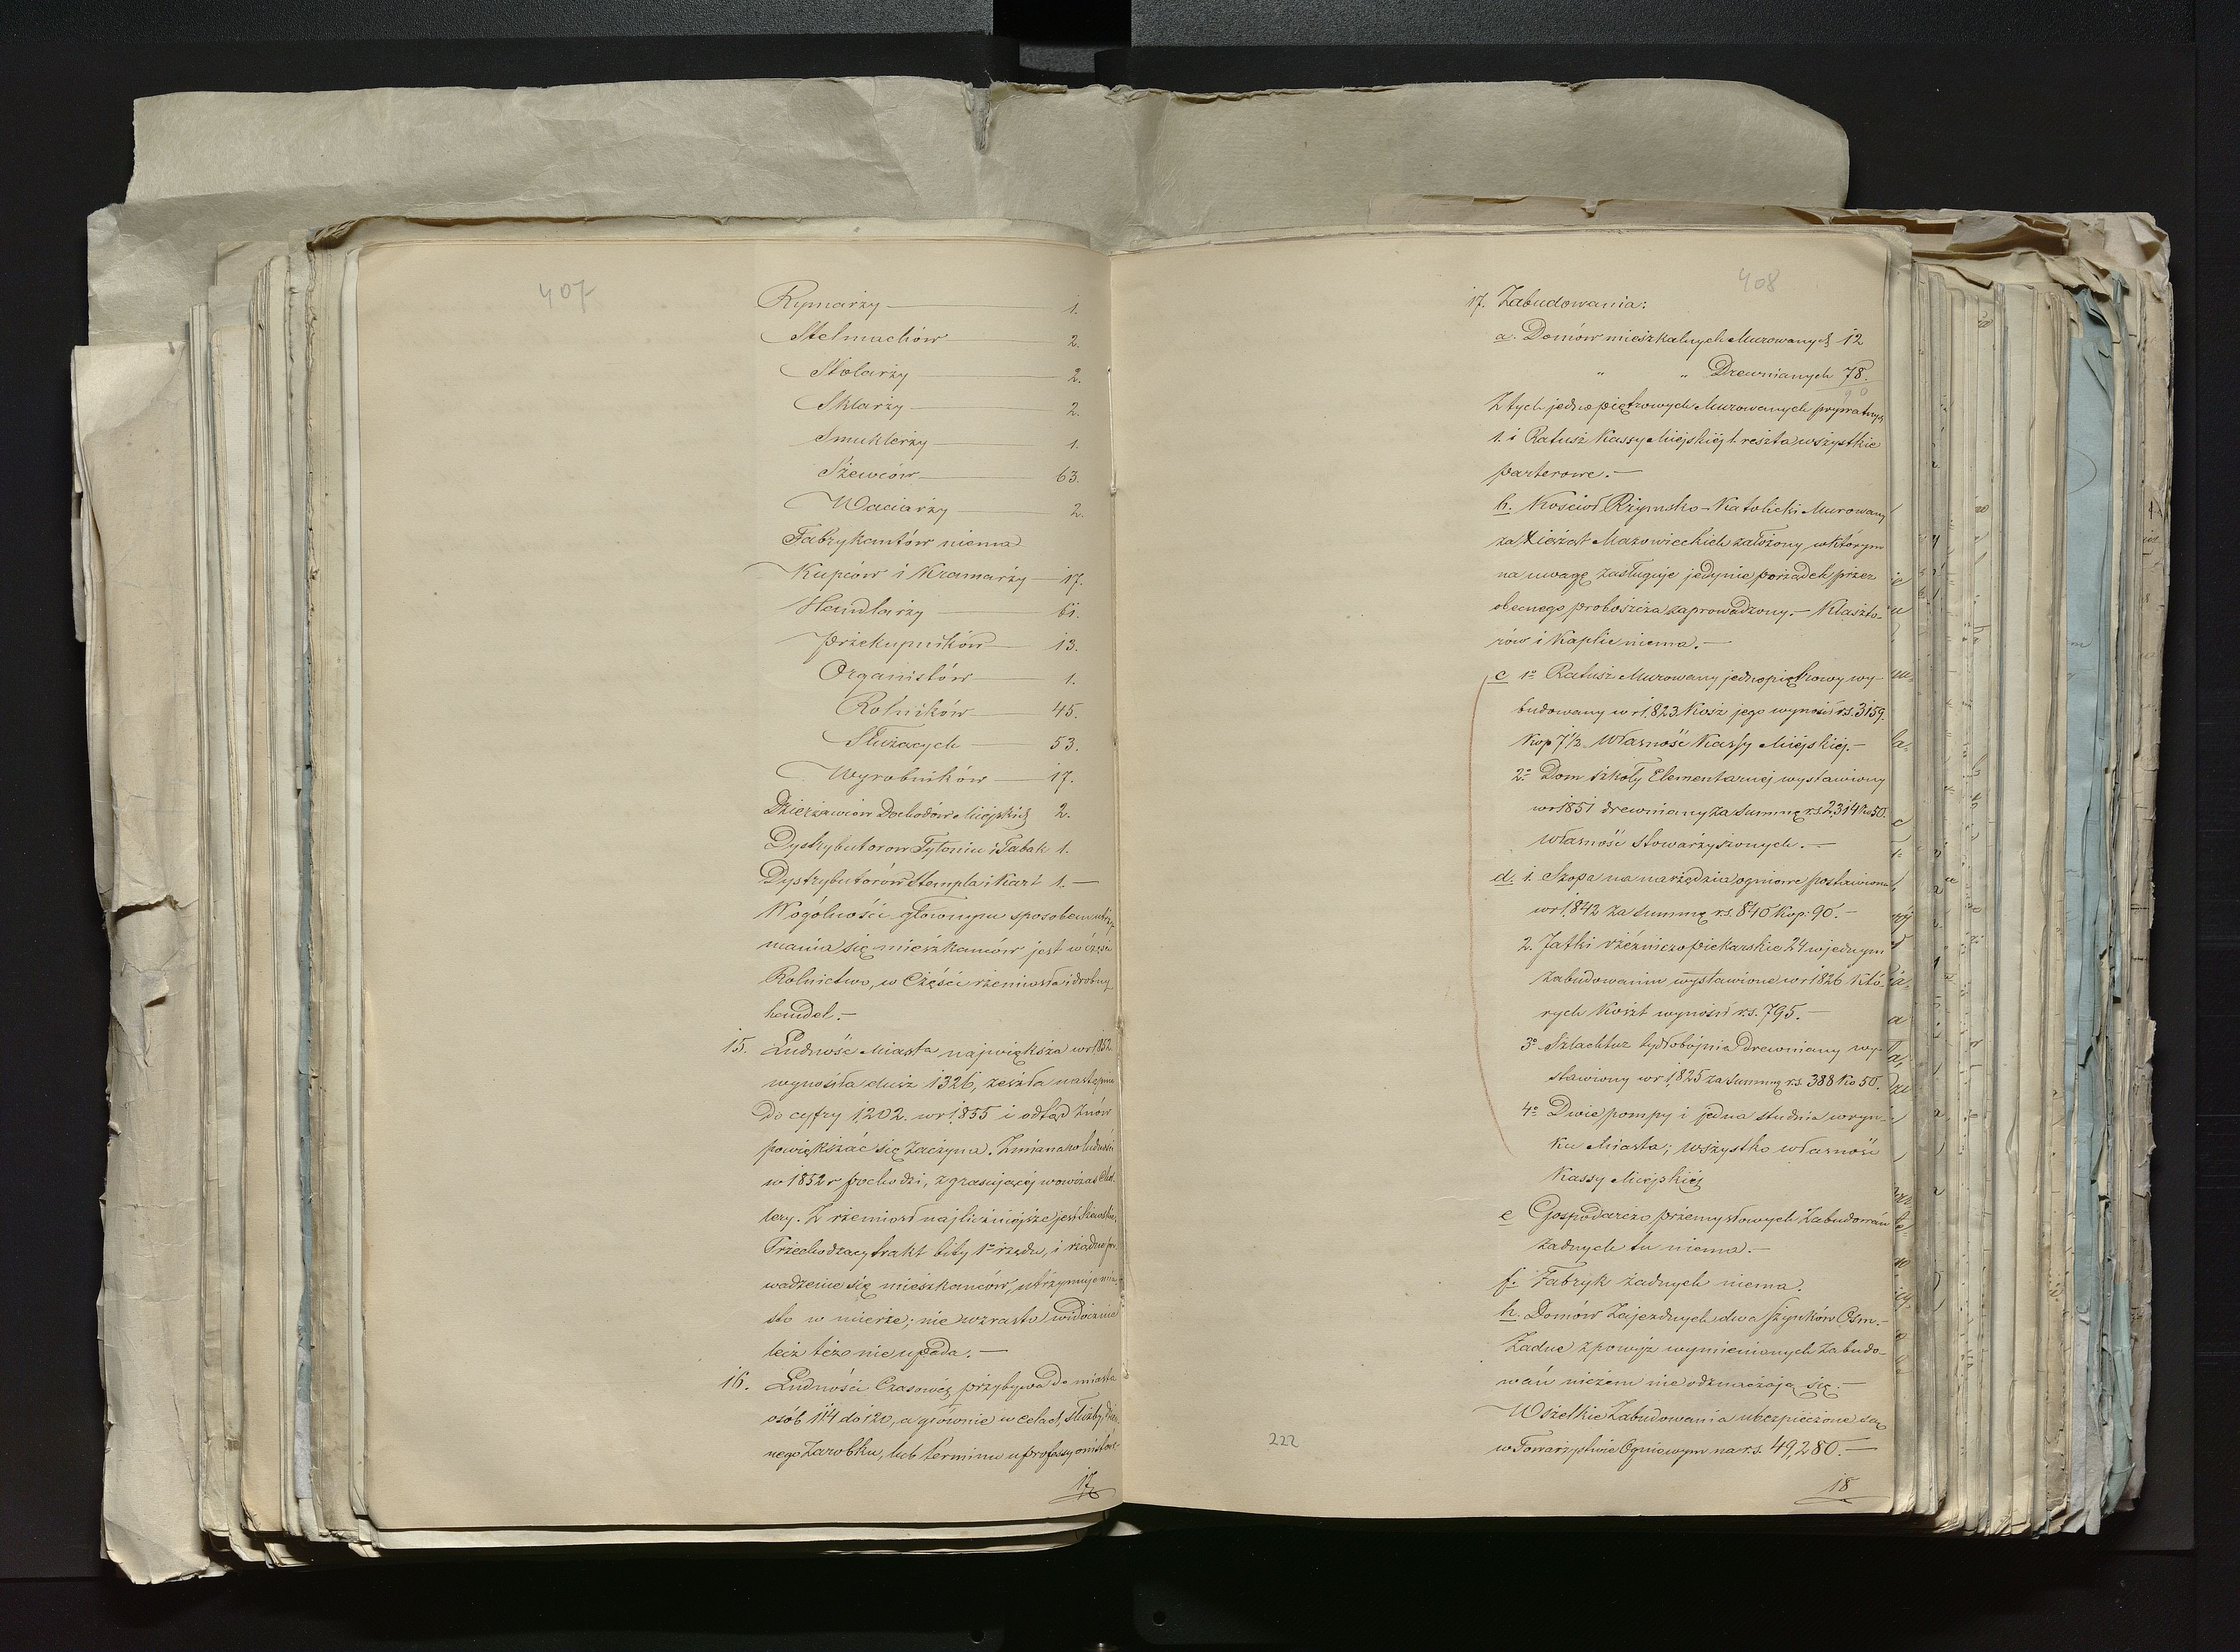 407
Rymarzy 1.
Stelmachów 2.
Stolarzy 2.
Sklarzy 2.
Smuklerzy 1.
Szewców 63.
Waciarzy 2.
Fabrykantów niema
Kupców i Kramarzy 17.
Handlarzy
Przekupników 13.
Organistów 1.
Rolników 45.
Służących 53.
Wyrobników 17.
Dzierżawców Dochodów Miejskich 2.
Dystrybutorów Tytoniu i Tabak 1.
Dystrybutorów Stempla i Kart 1. —
W ogólności głównym sposobem utrzy
mania się mieszkańców jest w części
Rolnictwo, w Części rzemiosła i drobny
handel. —
15. Ludność Miasta największa w r 1852.
wynosiła dusz 1326, zeszła następnie
do cyfry 1202. w r 1855 i odtąd znów
powiększać się zaczyna. Zmiana w ludności
w 1852 r pochodzi, z grasującej wówczas Cho
lery. Z rzemiosł najliczniejsze jest Szewskie,
Przechodzący trakt bity 1o rzędu, i rządne pro
wadzenie się mieszkańców, utrzymuje mia
sto w mierze; nie wzrasta widocznie
lecz też nie upada. —
16. Ludności Czasowej przybywa do miasta
osób 114 do 120, a głównie w celach służby,
nego Zarobku, lub terminu u professyonistów.
17
408
17. Zabudowania:
a. Domów mieszkalnych Murowanych 12
" " Drewnianych 78.
90
Z tych jedno piętrowych Murowanych prywatnych
1. i Ratusz Kassy Miejskiej 1. reszta wszystkie
parterowe. —
b. Kościoł Rzymsko-Katolicki Murowany
za Xiążąt Mazowieckich założony, w którym
na uwagę zasługuje jedynie porządek przez
obecnego proboszcza zaprowadzony. — Klaszto-
rów i Kaplic niema. —
c 1o Ratusz Murowany jednopiętrowy wy-
budowany w r 1823 Kosz jego wynosił rs. 3159.
Kop 7½ Własność Kassy Miejskiej. —
2o Dom szkoły Elementarnej wystawiony
w r 1851 drewniany za summę rs 2,314 Ko 50.
Własność Stowarzyszonych. —
d. 1. Szopa na narzędzia ogniowe postawiona
w r 1842 za summę rs. 840 Kop. 90. —
2. Jatki rzeźniczo piekarskie 24 w jednym
zabudowaniu wystawione w r 1826 Któ-
rych Koszt wynosił rs. 795. —
3o Szlachtuz bydłobójnia drewniany wy-
stawiony w r 1825 za summę rs. 388 Ko 50.
4o Dwie pompy i jedna studnia w ryn-
ku Miasta; wszystko własność
Kassy Miejskiej
e Gospodarczo przemysłowych Zabudowań
żadnych tu niema. —
f. Fabryk żadnych niema.
h. Domów Zajezdnych dwa szynków Osm. —
Żadne z powyż wymienionych Zabudo-
wań niczem nie odznaczają się. —
Wszelkie Zabudowania ubezpieczone są
w Towarzystwie Ogniowym na rs. 49,280. —
222
18